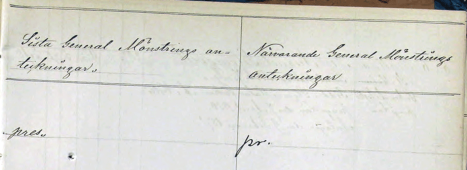 Sista General Mönstrings an-
teckningar.
Närvarande General Mönstrings
anteckningar
pres.
pr.